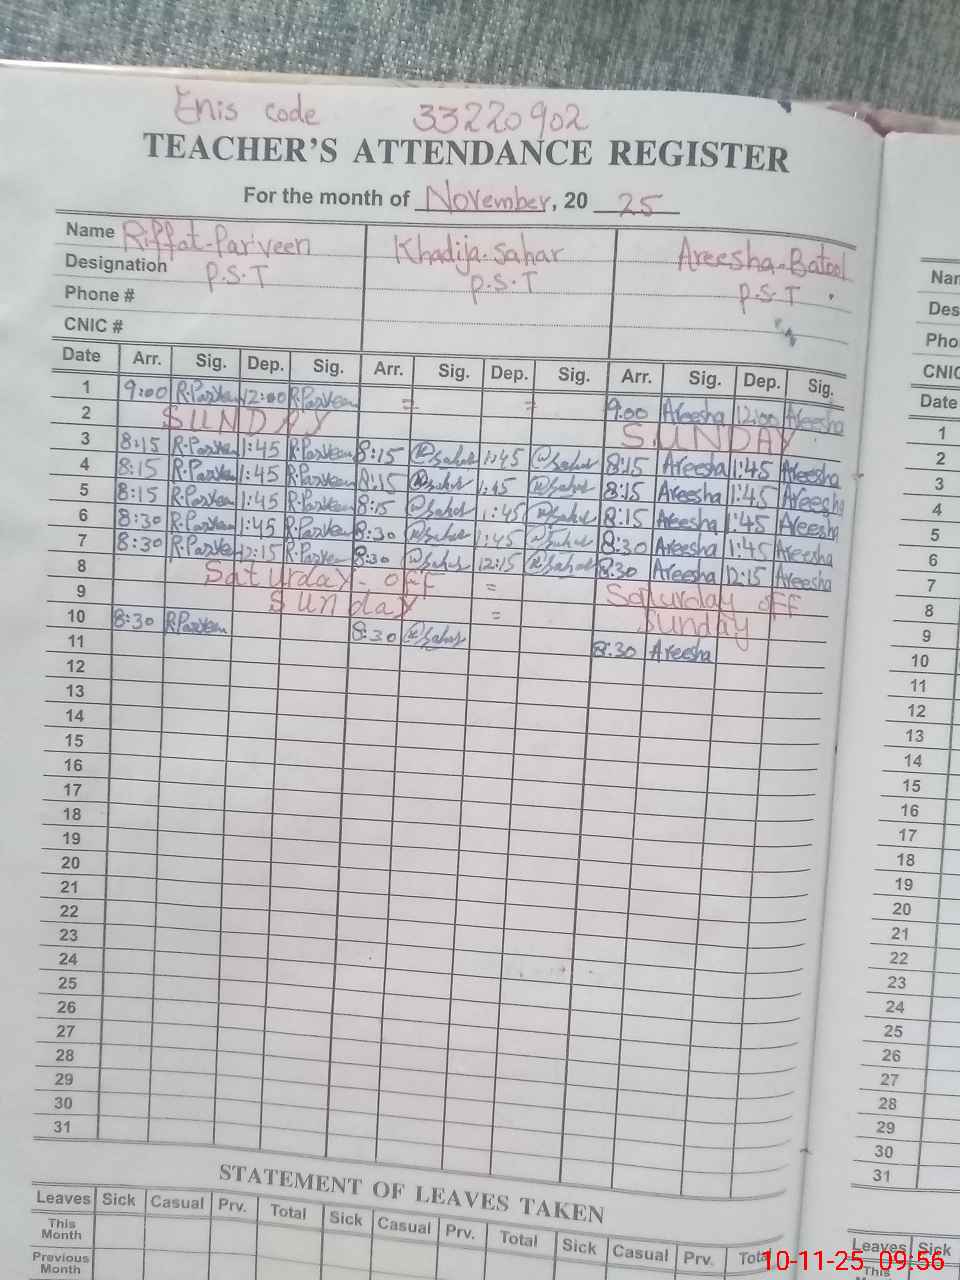 Enis code 33220902
TEACHER'S ATTENDANCE REGISTER
For the month of November, 20 25
Name Riffat-Parveen Khadija-Sahar Areesha-Batool
Designation P.S.T P.S.T P.S.T
Phone #
CNIC #
Date Arr. Sig. Dep. Sig. Arr. Sig. Dep. Sig. Arr. Sig. Dep. Sig.
1 9:00 R.Parveen 12:00 R.Parveen = = 9:00 Areesha 12:00 Areesha
2 SUNDAY SUNDAY
3 8:15 R.Parveen 1:45 R.Parveen 8:15 Sahar 1:45 Sahar 8:15 Areesha 1:45 Areesha
4 8:15 R.Parveen 1:45 R.Parveen 8:15 Sahar 1:45 Sahar 8:15 Areesha 1:45 Areesha
5 8:15 R.Parveen 1:45 R.Parveen 8:15 Sahar 1:45 Sahar 8:15 Areesha 1:45 Areesha
6 8:30 R.Parveen 1:45 R.Parveen 8:30 Sahar 1:45 Sahar 8:30 Areesha 1:45 Areesha
7 8:30 R.Parveen 12:15 R.Parveen 8:30 Sahar 12:15 Sahar 8:30 Areesha 12:15 Areesha
8 Saturday - off = Saturday off
9 Sunday = Sunday
10 8:30 R.Parveen 8:30 Sahar 8:30 Areesha
11
12
13
14
15
16
17
18
19
20
21
22
23
24
25
26
27
28
29
30
31
STATEMENT OF LEAVES TAKEN
Leaves Sick Casual Prv. Total Sick Casual Prv. Total Sick Casual Prv. Total
This Month
Previous Month
Nam
Des
Pho
CNIC
Date
1
2
3
4
5
6
7
8
9
10
11
12
13
14
15
16
17
18
19
20
21
22
23
24
25
26
27
28
29
30
31
Leaves Sick
This
10-11-25 09:56